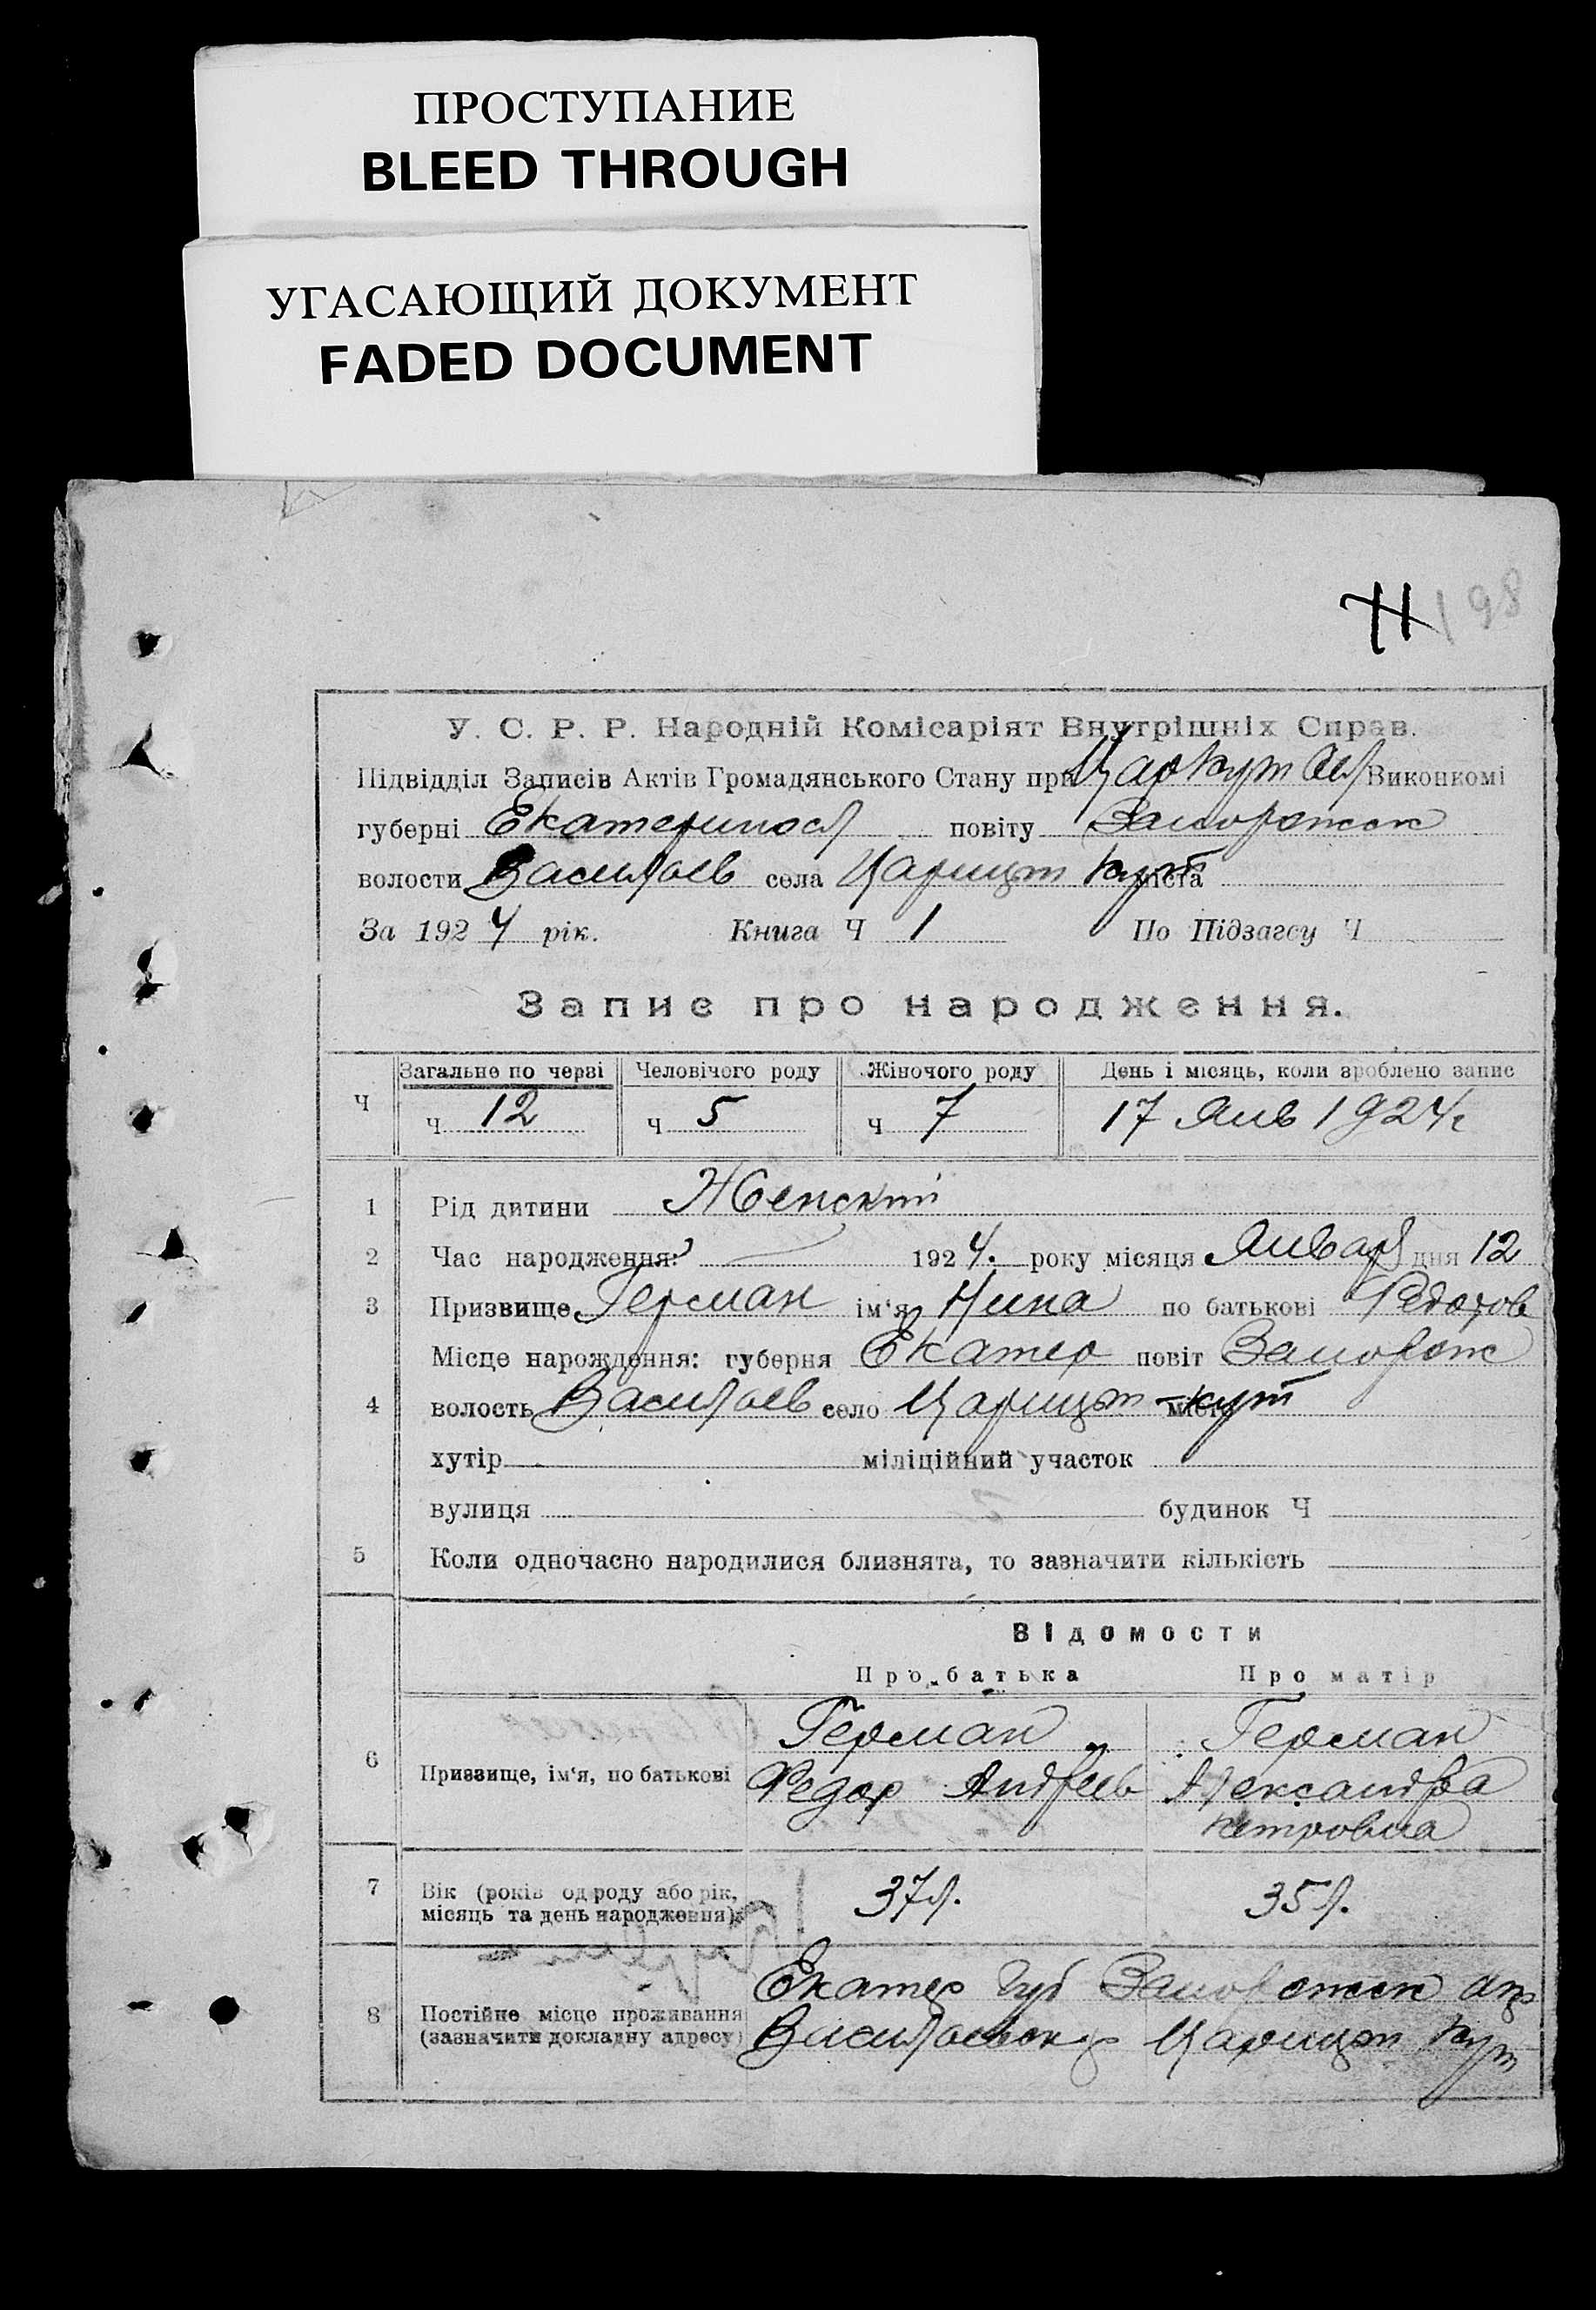 ПРОСТУПАНИЕ
BLEED THROUGH
УГАСАЮЩИЙ ДОКУМЕНТ
FADED DOCUMENT
198
У. С. Р. Р. Народній Комісаріят Внутрішніх Справ.
Підвідділ Записів Актів Громадянського Стану при Царкут Виконкомі
губерні Екатериносл повіту Запорожск
волости Васильев села Царицын Кут міста
За 1924 рік. Книга Ч 1 По Підзагсу Ч
Запис про народження.
Загальне по черзі Человічого роду Жіночого роду День і місяць, коли зроблено запис
Ч ч 12 ч 5 ч 7 17 Янв 1924 г
1 Рід дитини Женский
2 Час народження: 1924. року місяця Января дня 12
3 Призвище Герман ім'я Нина по батькові Федоров
Місце нарождення: губерня Екатер повіт Запорож
4 волость Васильев село Царицын Кут місто
хутір міліційний участок
вулиця будинок Ч
5 Коли одночасно народилися близнята, то зазначити кількість
Відомости
Про батька Про матір
Герман Герман
6 Призвище, ім'я, по батькові Федор Андреев Александра
Петровна
7 Вік (років од роду або рік, 37 л. 35 л.
місяць та день народження)
Екатер губ Запорожск окр
8 Постійне місце проживання
(зазначити докладну адресу) Васильевск р Царицын Кут